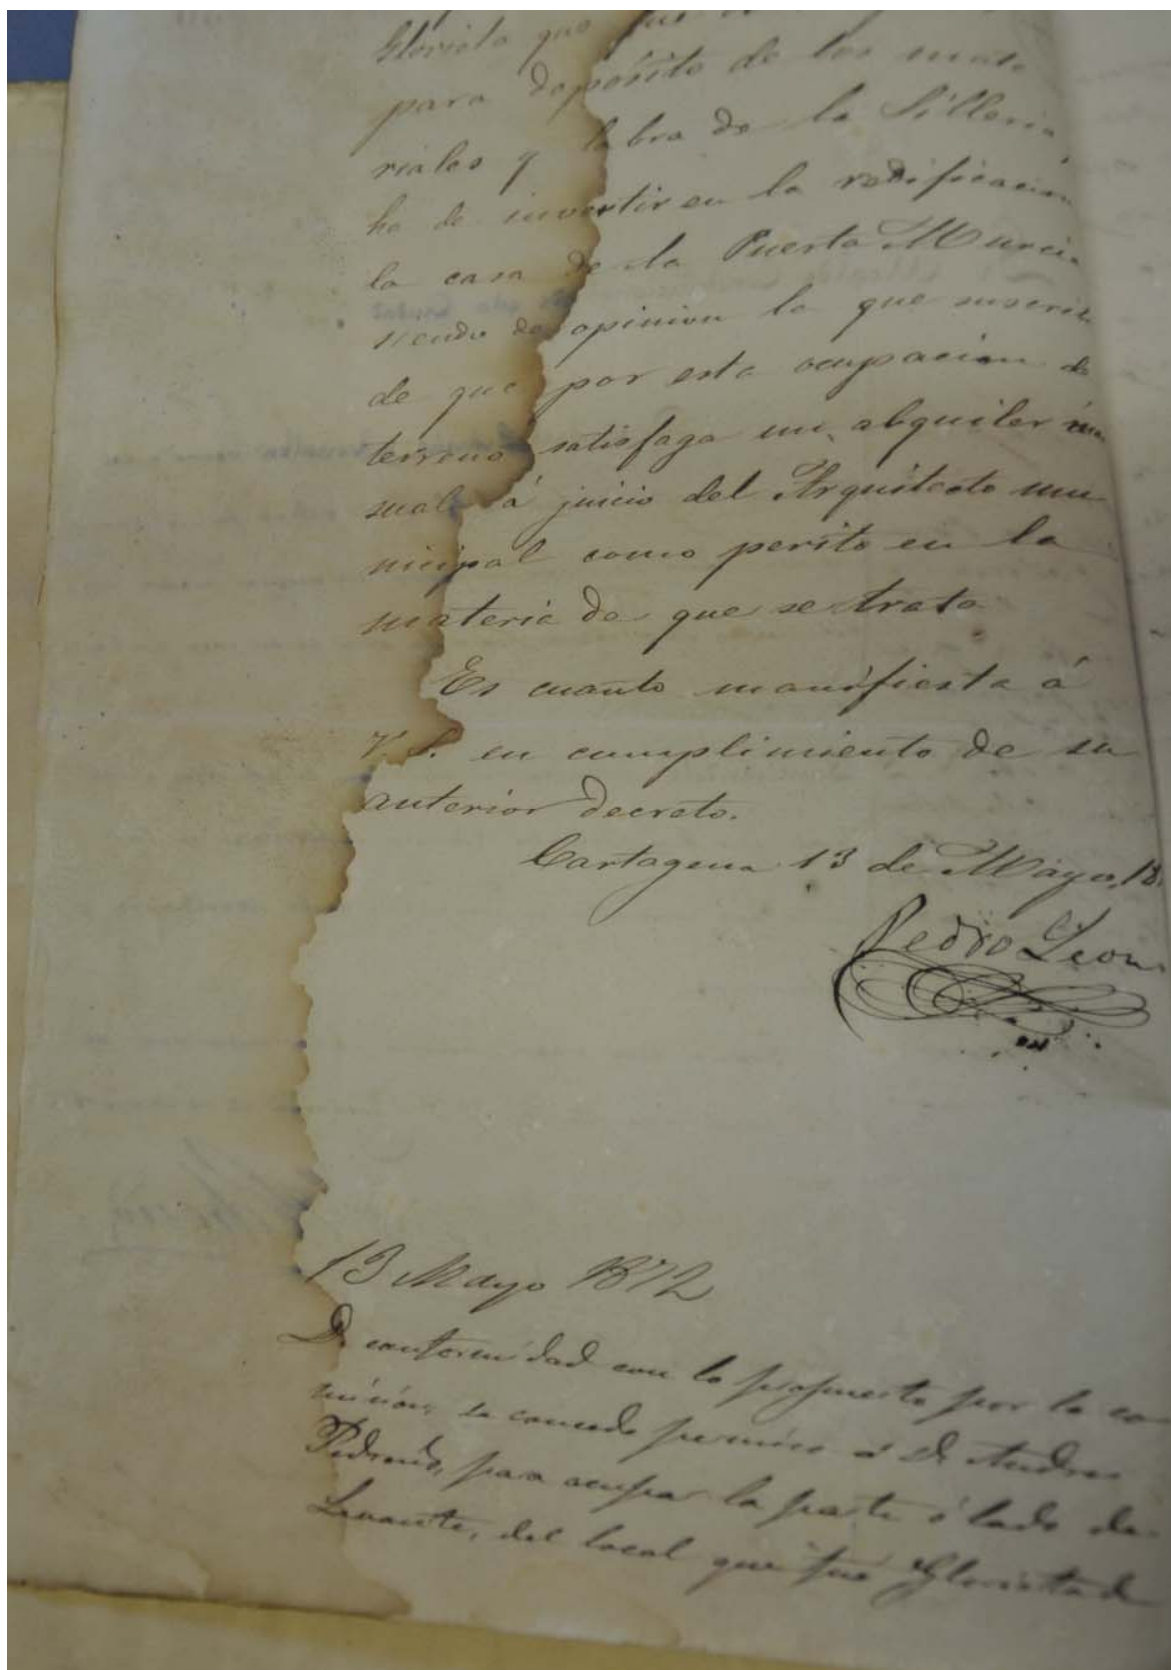 Glorieta que fue
para deposito de los mate
riales y labra de la Silleria
ha de invertir en la redificacion
la casa de la Puerta Murcia
siendo de opinion la que suscribe
de que por esta ocupacion de
terreno satisfaga un alquiler men
sual á juicio del Arquitecto mu
nicipal como perito en la
materia de que se trata
Es cuanto manifiesta á
V.S. en cumplimiento de su
anterior decreto.
Cartagena 13 de Mayo 18
Pedro Leon
13 Mayo 1872
De conformidad con lo propuesto por la co
mision, se concede permiso á D. Andres
Pedreño, para ocupar la parte ó lado de
Levante, del local que fue Glorieta de